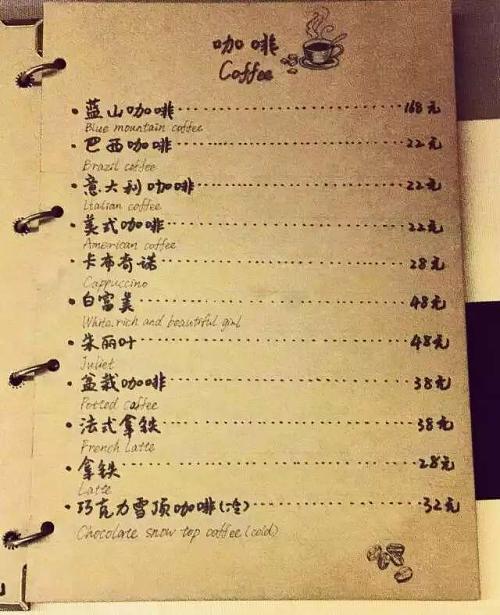 咖啡
Coffee
蓝山咖啡 168元
Blue mountain coffee
巴西咖啡 22元
Brazil coffee
意大利咖啡 22元
Italian coffee
美式咖啡 22元
American coffee
卡布奇诺 28元
Cappuccino
白富美 48元
White rich and beautiful girl
朱丽叶 48元
Juliet
盆栽咖啡 38元
Potted coffee
法式拿铁 38元
French Latte
拿铁 28元
Latte
巧克力雪顶咖啡(冷) 32元
Chocolate snow top coffee (cold)